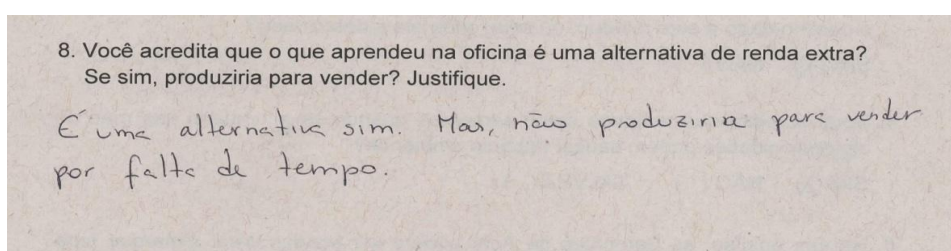 8. Você acredita que o que aprendeu na oficina é uma alternativa de renda extra?
Se sim, produziria para vender? Justifique.
É uma alternativa sim. Mas, não produziria para vender
por falta de tempo.